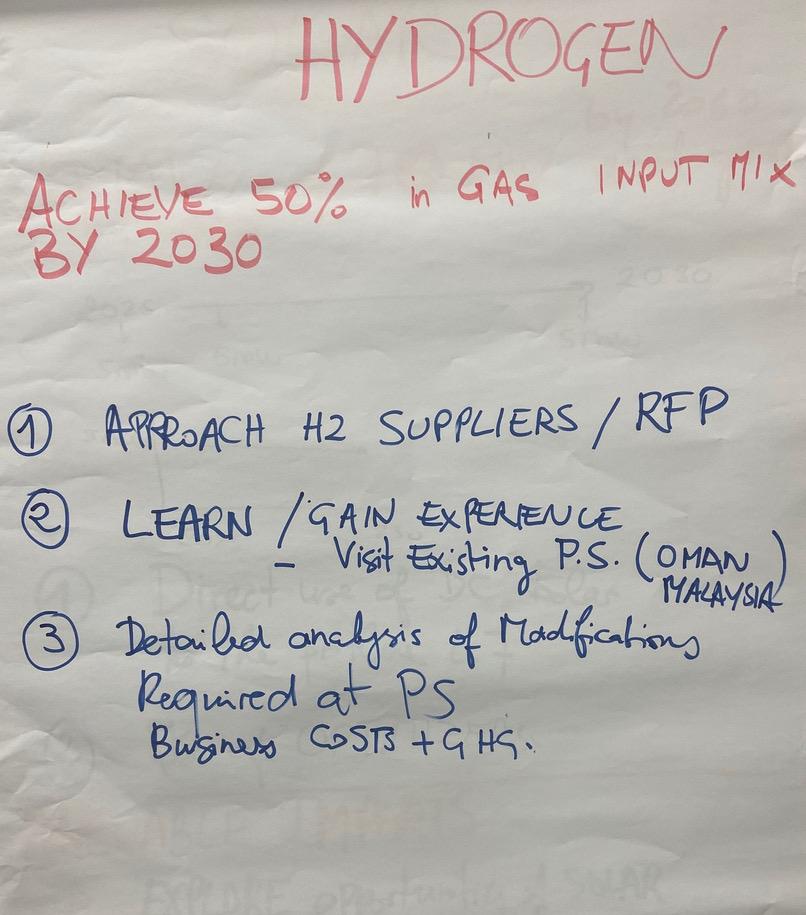 HYDROGEN
ACHIEVE 50% in GAS INPUT MIX
BY 2030
① APPROACH H2 SUPPLIERS / RFP
② LEARN / GAIN EXPERIENCE
– Visit Existing P.S. (OMAN
MALAYSIA)
③ Detailed analysis of Modifications
Required at PS
Business COSTS + GHG.